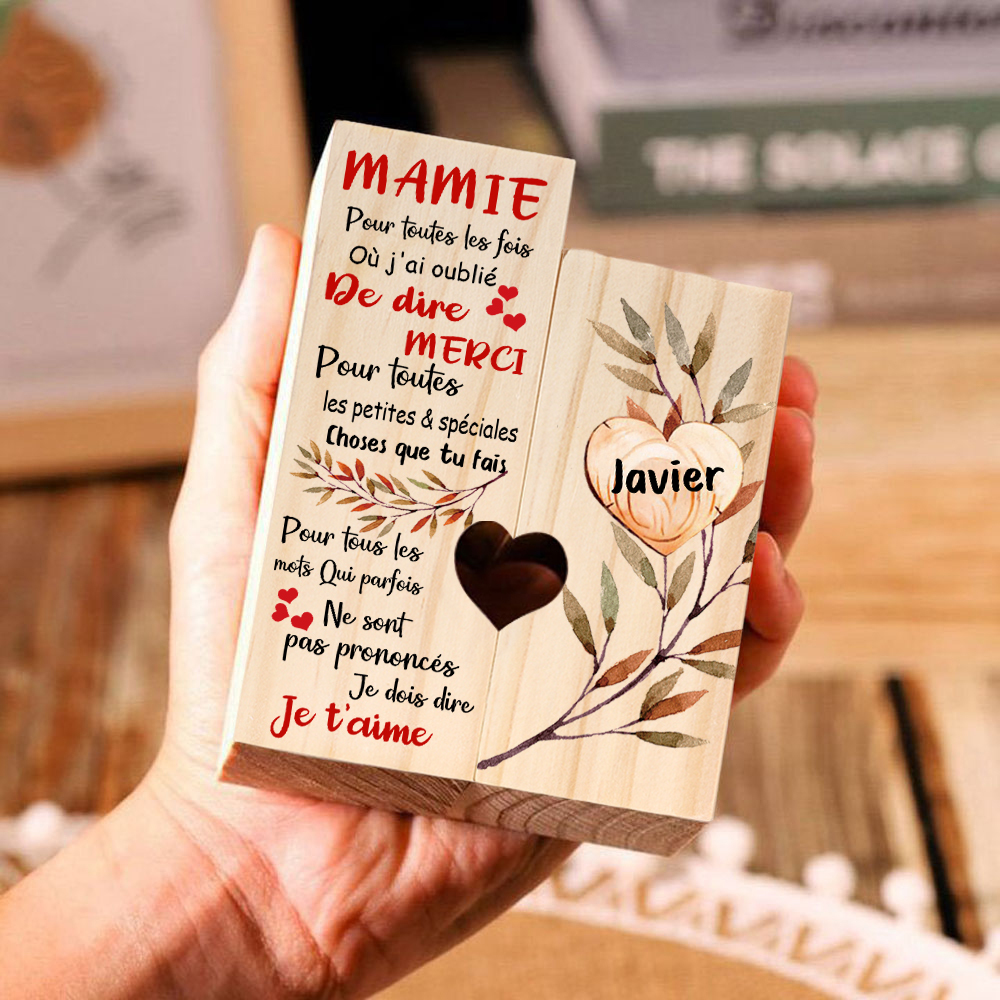 MAMIE
Pour toutes les fois
Où j'ai oublié
De dire
MERCI
Pour toutes
les petites & spéciales
Choses que tu fais
Pour tous les
mots Qui parfois
Ne sont
pas prononcés
Je dois dire
Je t'aime
Javier
THE SOLACE